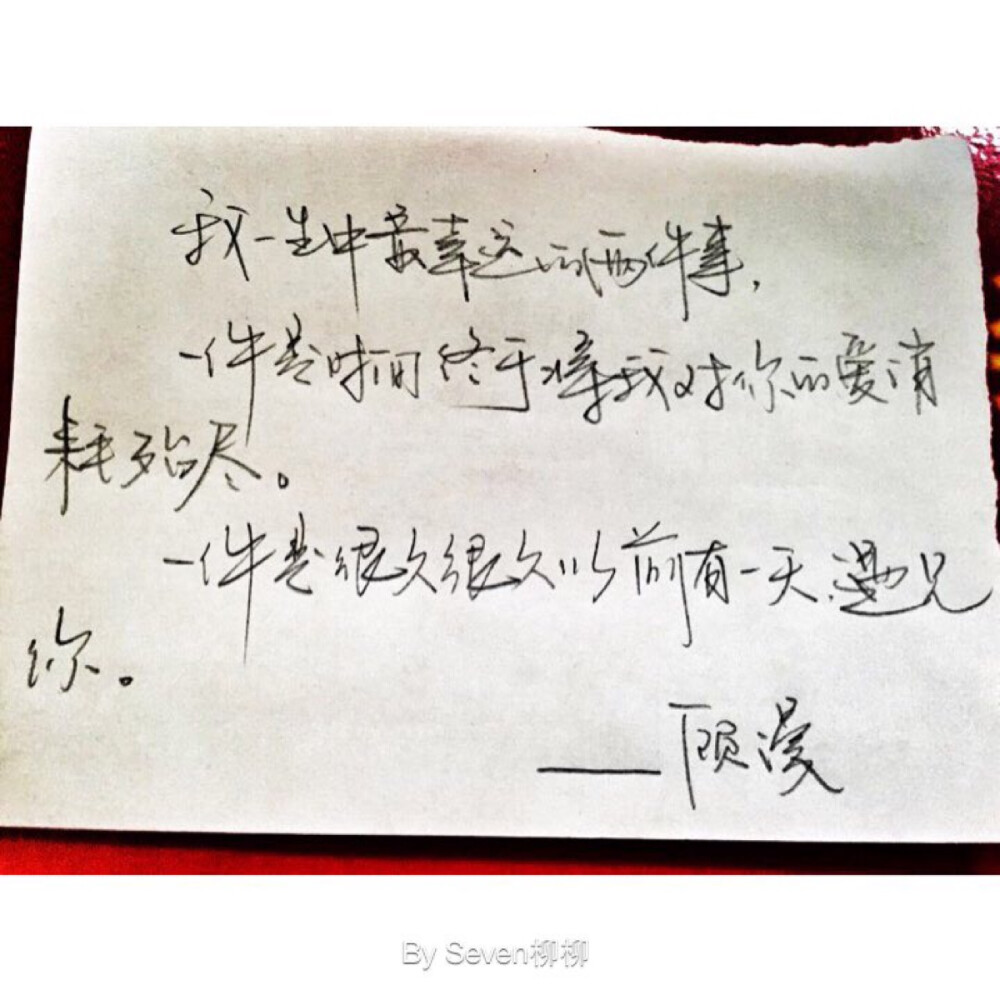 我一生中最幸运的两件事,
一件是时间终于将我对你的爱消
耗殆尽。
一件是很久很久以前有一天,遇见
你。
——顾漫
By Seven柳柳